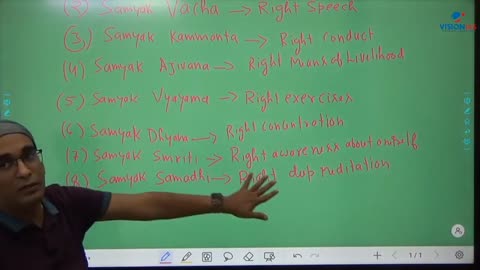 (2) Samyak Vacha → Right Speech
(3) Samyak Kammonta → Right Conduct
(4) Samyak Ajivana → Right Means of Livelihood
(5) Samyak Vyayama → Right exercises
(6) Samyak Dhyana → Right concentration
(7) Samyak Smriti → Right awareness about oneself
(8) Samyak Samadhi → Right deep meditation
VISION
1/1